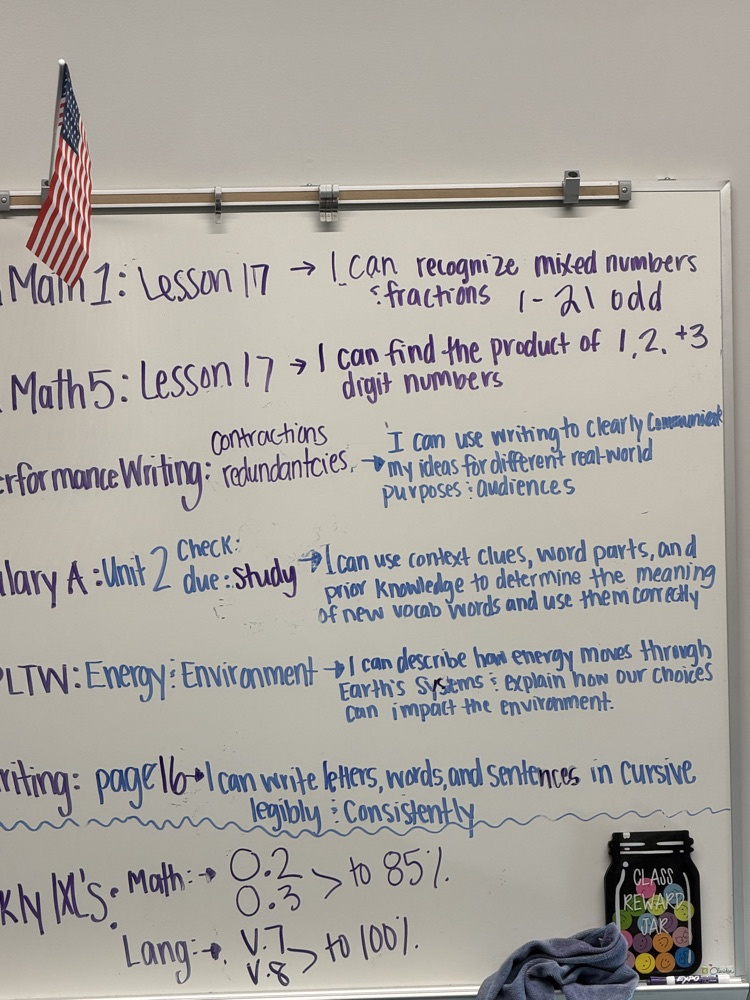 Math 1: Lesson 17 → I can recognize mixed numbers
: fractions 1 - 21 odd
Math 5: Lesson 17 → I can find the product of 1, 2, +3
digit numbers
erformance Writing: contractions
redundantcies, → I can use writing to clearly communicate
my ideas for different real-world
purposes : audiences
ulary A : Unit 2 Check:
due : study → I can use context clues, word parts, and
prior knowledge to determine the meaning
of new vocab words and use them correctly
PLTW: Energy : Environment → I can describe how energy moves through
Earth's Systems : explain how our choices
can impact the environment.
riting: page 16 → I can write letters, words, and sentences in cursive
legibly : consistently
kly IXL's: Math: → O.2
O.3 > to 85%
Lang: → V.7
V.8 > to 100%
CLASS
REWARD
JAR
EXPO